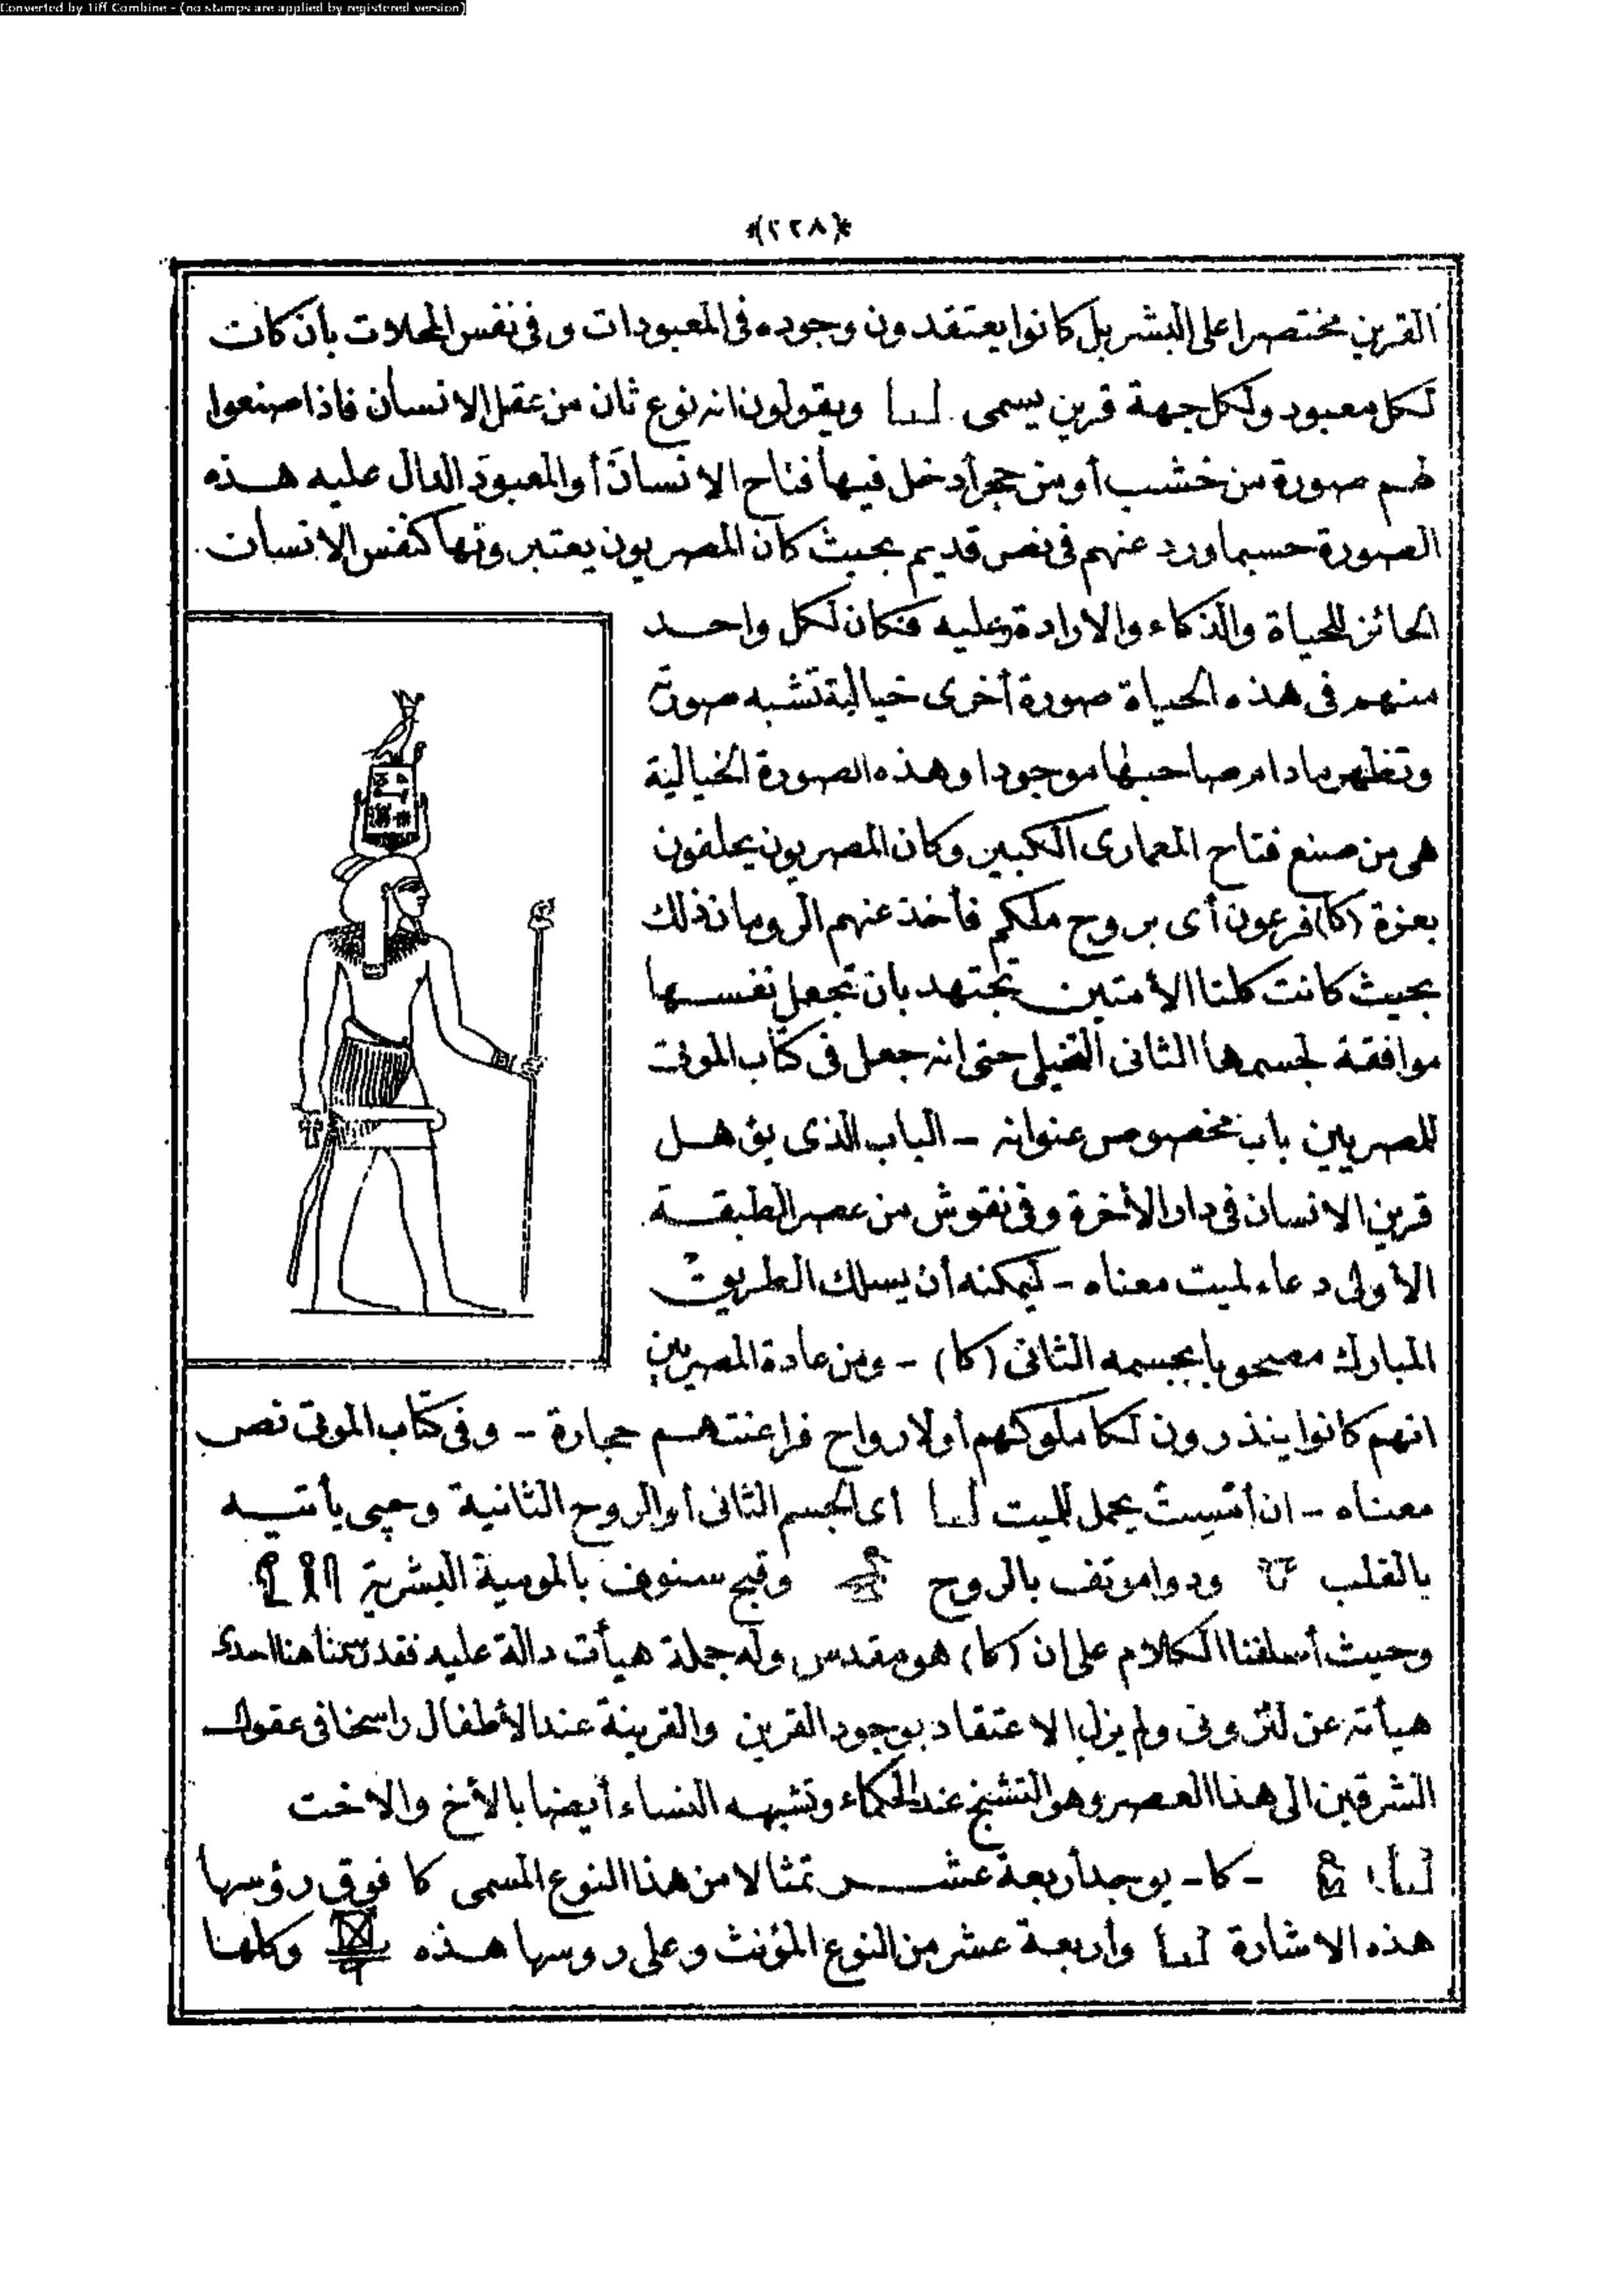 Converted by Tiff Combine - (no stamps are applied by registered version)
*(٢٢٨)*
القرين مختصرا على البشر بل كانوا يعتقدون وجوده فى المعبودات وفى نفس المحلات بأن كان
لكل معبود ولكل جهة قرين يسمى ويقولون انه نوع ثان من عقل الانسان فاذا صنعوا
لهم صورة من خشب أو من حجر أدخل فيها فتاح الانسان أو المعبود الدال عليه هذه
الصورة حسبما ورد عنهم فى نص قديم بحيث كان المصريون يعتبرونها كنفس الانسان
الحائز للحياة والذكاء والارادة وعليه فكان لكل واحد
منهم فى هذه الحياة صورة أخرى خيالية تشبه صورته
وتظهر مادام صاحبها موجودا وهذه الصورة الخيالية
هى من صنع فتاح المعمارى الكبير وكان المصريون يحلفون
بعزة (كا) فرعون أى بروح ملكهم فأخذ عنهم الرومان ذلك
بحيث كانت كلتا الأمتين تجتهد بان تجعل نفسها
موافقة لجسمها الثانى حتى انه جعل فى كتاب الموتى
للمصريين باب مخصوص عنوانه - الباب الذى هل
قرين الانسان فى دار الأخرة وفى نقوش من عصر الطبقة
الأولى دعاء لميت معناه - ليمكنه أن يسلك الطريق
المبارك مصحوبا بجسمه الثانى (كا) - ومن عادة المصريين
انهم كانوا ينذرون لكا ملوكهم أو لارواح فراعنتهم حجارة - وفى كتاب الموتى نص
معناه - ان أمسِتْ يحمل للميت أى الجسم الثانى أو الروح الثانية وحپى يأتيه
بالقلب ودواموتف بالروح وقبح سنوف بالمومية البشرية
وحيث أسلفنا الكلام على ان (كا) هو مقدس وله جملة هيأت دالة عليه فقد رسمنا هنا احدى
هيأته عن لنزونى ولم يزل الاعتقاد بوجود القرين والقرينة عند الأطفال راسخا فى عقول
الشرقيين الى هذا العصر وهو التشنج عند الحكماء وتشبهه النساء أيضا بالأخ والاخت
- كا - يوجد أربعة عشر تمثالا من هذا النوع المسمى كا فوق رؤسها
هذه الاشارة وأربعة عشر من النوع المؤنث وعلى روسها هذه وكلها